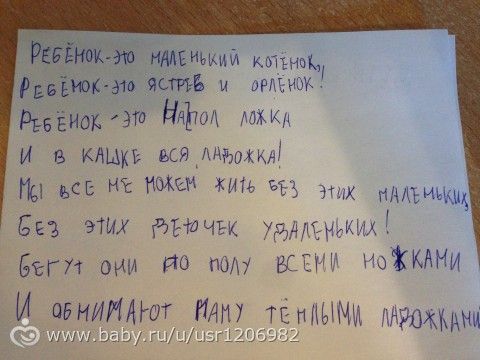 РЕБЁНОК-ЭТО МАЛЕНЬКИЙ КОТЁНОК,
РЕБЁНОК-ЭТО ЯСТРЕБ И ОРЛЁНОК!
РЕБЁНОК-ЭТО НА ПОЛ ЛОЖКА
И В КАШКЕ ВСЯ ЛАДОЖКА!
МЫ ВСЕ НЕ МОЖЕМ ЖИТЬ БЕЗ ЭТИХ МАЛЕНЬКИХ,
БЕЗ ЭТИХ ДЕТОЧЕК УДАЛЕНЬКИХ!
БЕГУТ ОНИ ПО ПОЛУ ВСЕМИ НОЖКАМИ
И ОБНИМАЮТ МАМУ ТЁПЛЫМИ ЛАДОЖКАМИ
www.baby.ru/u/usr1206982